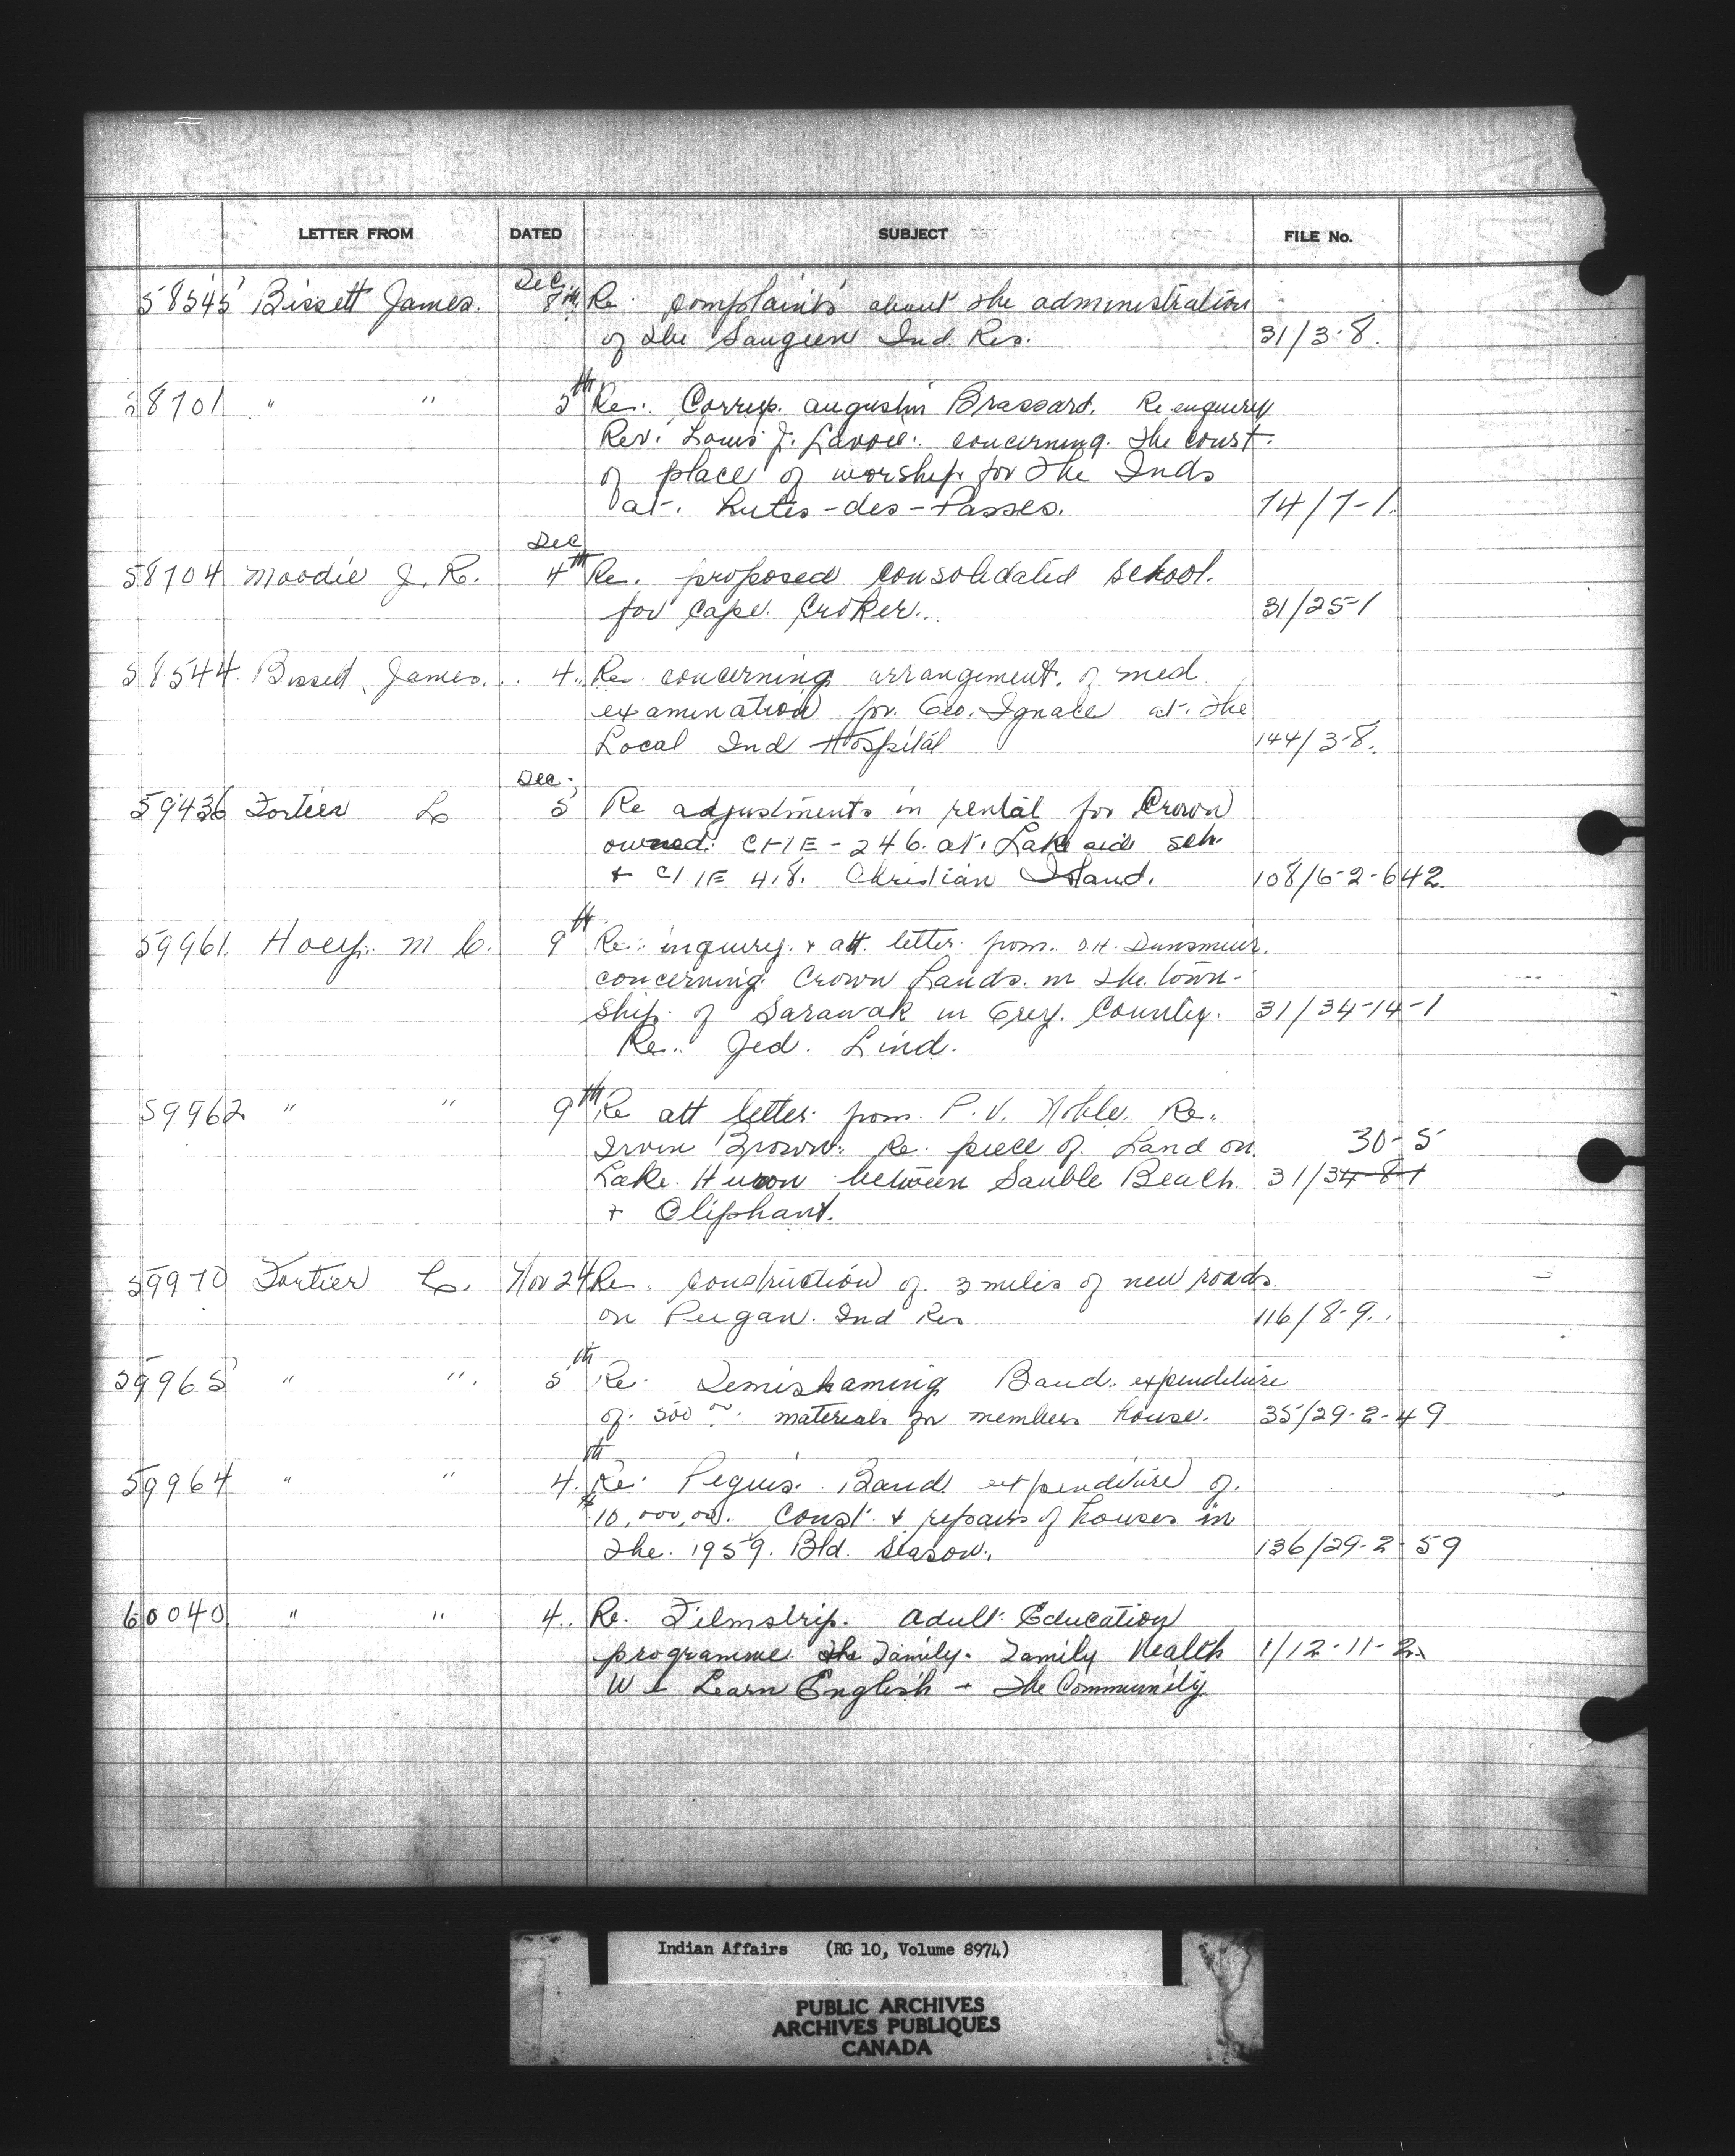 LETTER FROM DATED SUBJECT FILE No.
Dec.
58545 Bissett James. 8th Re. complaints about the administration
of the Saugeen Ind. Res. 31/3-8.
58701 " " 5th Re. Corresp. Augustin Brassard. Re enquiry
Rev. Louis J. Lavoie. concerning. the const.
of place of worship for the Inds
at. Chutes-des-Passes. 74/7-1.
Dec
58704 Moodie J. R. 4th Re. proposed consolidated school.
for Cape Croker. 31/25-1
58544 Bissett James. 4. Re. concerning arrangement. of med.
examination for Geo. Ignace at the
Local Ind Hospital 144/3-8.
Dec.
59436 Fortier L 5 Re adjustments in rental for Crown
owned: CHIE-246. at. Lakeside sch.
+ CHIE 418. Christian Island. 108/6-2-642.
59961 Hoey. M C. 9th Re: inquiry. + att. letter. from. D.H. Dunsmuir.
concerning Crown Lands. in the. town-
ship. of Sarawak in Grey. County. 31/34-14-1
Re. Jed. Lind.
59962 " " 9th Re att letter. from. P. V. Noble. Re.
Irvin Brown. Re. piece of Land on 30-5
Lake. Huron between Sauble Beach. 31/34-8-1
+ Oliphant.
59970 Fortier L. Nov 24 Re. construction of 3 miles of new roads
on Peigan. Ind Res 116/8-9.
59965 " " 5th Re. Temiskaming Band. expenditure
of. 500 materials for members house. 35/29-2-49
59964 " " 4th Re: Peguis. Band expenditure of.
$10,000.00. Const. + repairs of houses in
the. 1959. Bld. Season. 136/29-2-59
60040 " " 4. Re. Filmstrip. Adult. Education
programme the Family. Family Health 1/12-11-2.
We Learn English + The Community
Indian Affairs (RG 10, Volume 8974)
PUBLIC ARCHIVES
ARCHIVES PUBLIQUES
CANADA